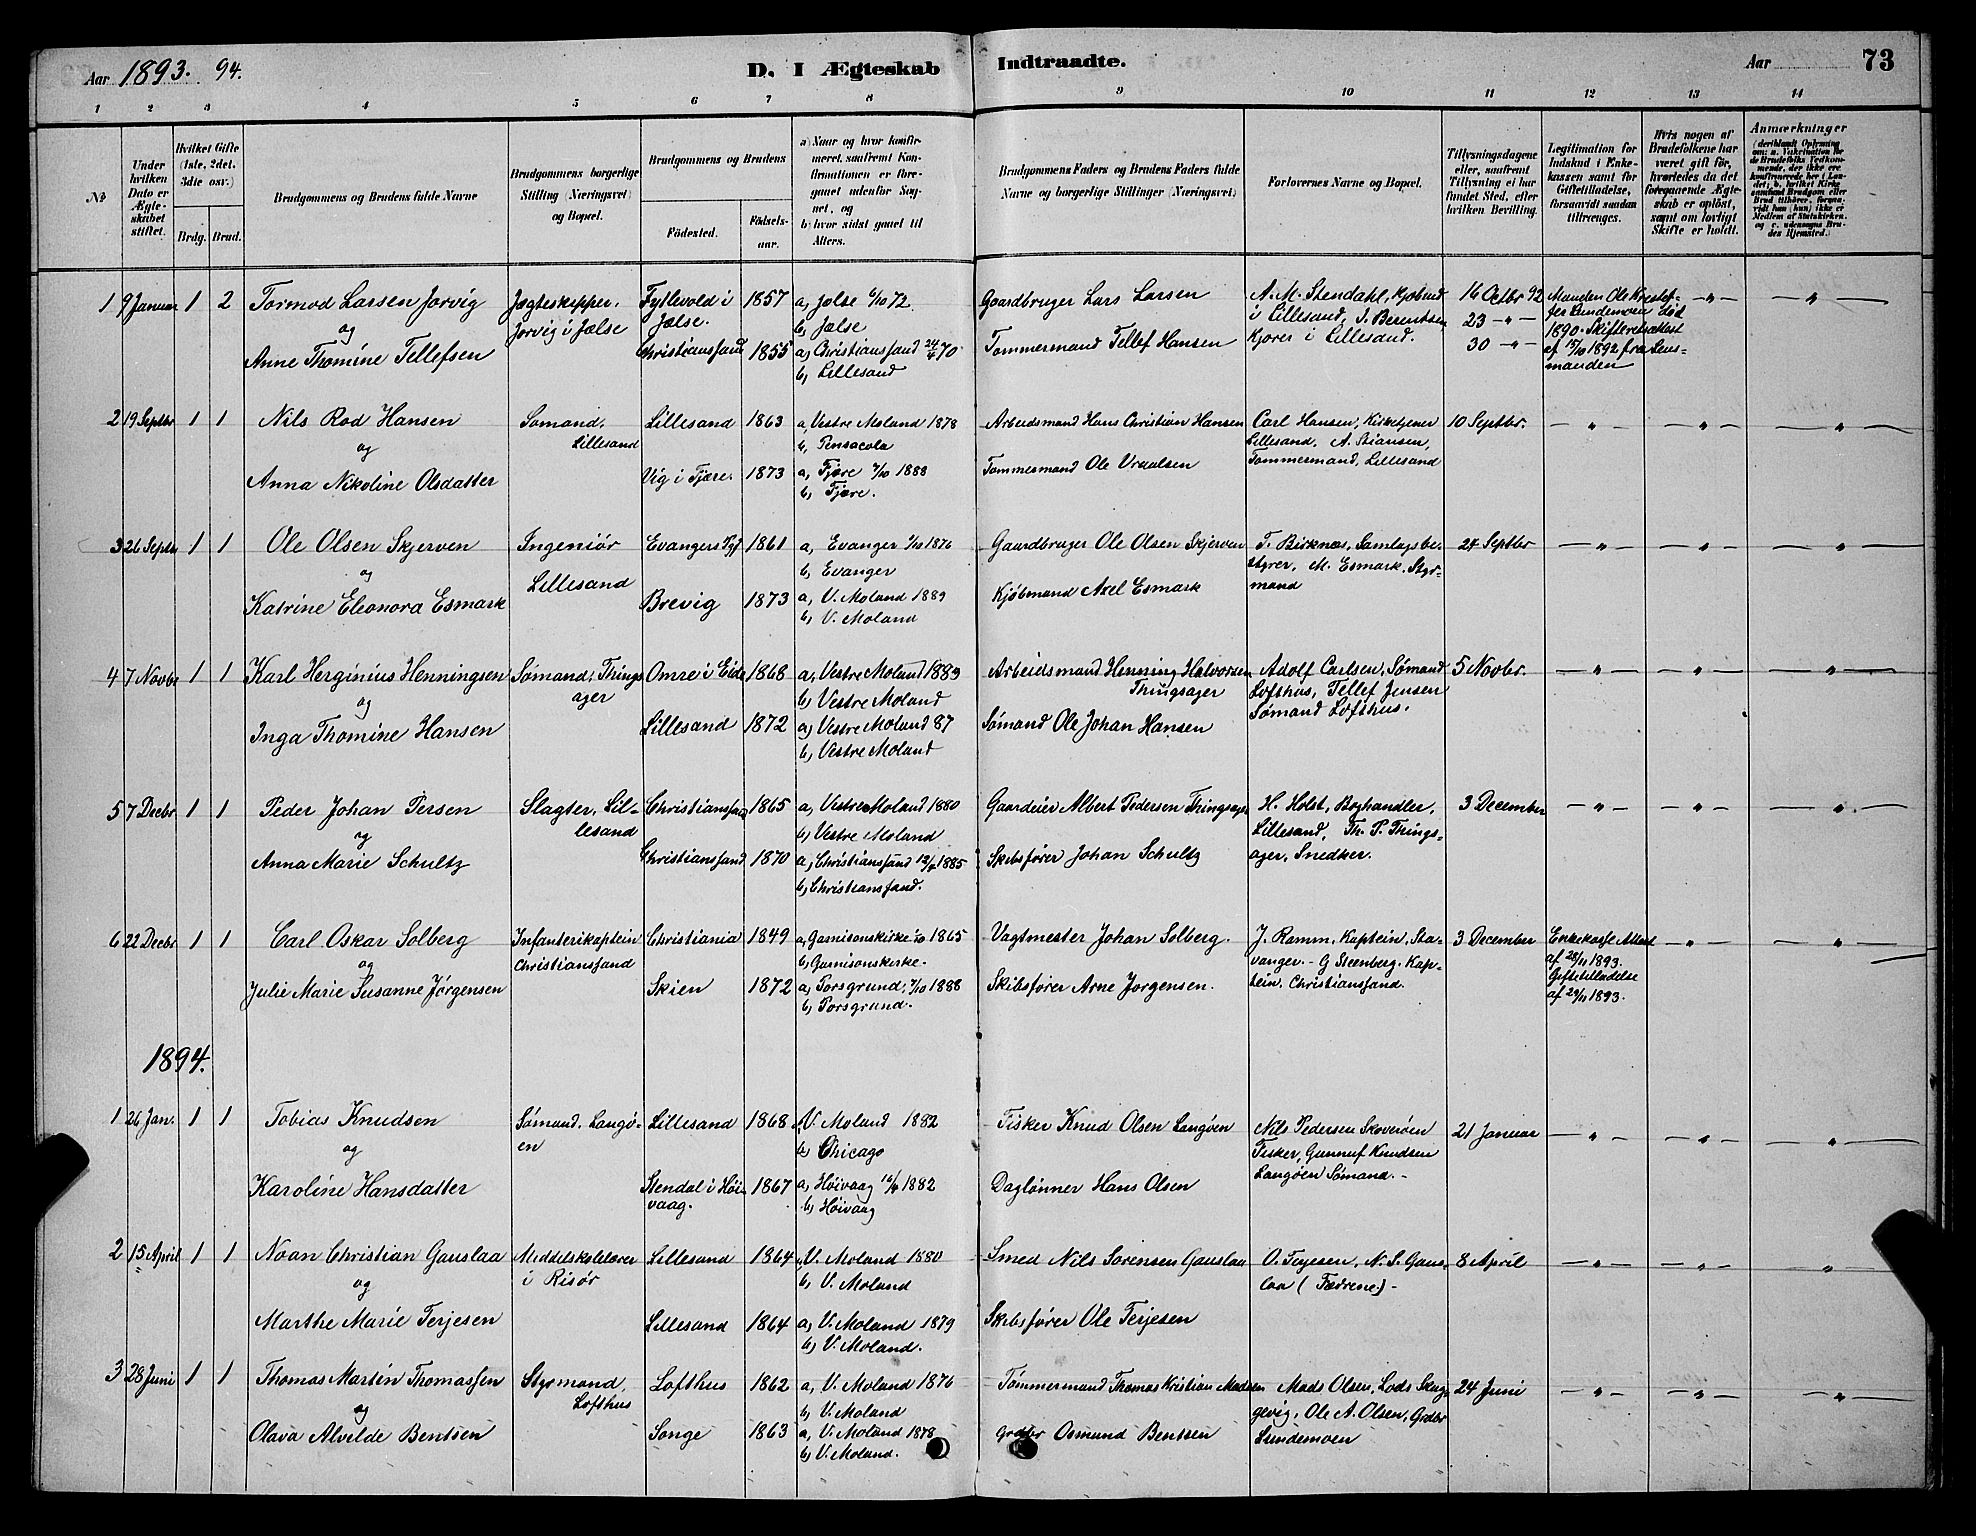 Aar 1893. 94.
D. I Ægteskab Indtraadte.
Aar 73
1 2 3 4 5 6 7 8 9 10 11 12 13 14
No
Under hvilken Dato er Ægteskabet stiftet.
Hvilket Gifte (1ste, 2det, 3die osv.)
Brdg. Brud.
Brudgommens og Brudens fulde Navne
Brudgommens borgerlige Stilling (Næringsvei) og Bopæl.
Brudgommens og Brudens
Fødested.
Fødsels-aar.
a) Naar og hvor konfirmeret, saafremt Konfirmationen er foregaaet udenfor Sognet, og
b) hvor sidst gaaet til Alters.
Brudgommens Faders og Brudens Faders fulde Navne og borgerlige Stillinger (Næringsvei)
Forlovernes Navne og Bopæl.
Tillysningsdagene eller, saafremt Tillysning ei har fundet Sted, efter hvilken Bevilling.
Legitimation for Indskud i Enkekassen samt for Giftetilladelse, forsaavidt saadan tiltrænges.
Hvis nogen af Brudefolkene har været gift før, hvorledes da det foregaaende Ægteskab er opløst, samt om lovligt Skifte er holdt.
Anmærkninger
1 9 Januar 1 2
Tormod Larsen Jorvig
og
Anne Thomine Tellefsen
Jægteskipper,
Jorvig i Jælse
Fyllevold i
Jælse.
1857
a, Jælse 6/10 72
b, Jælse
Christianssand 1855
a) Christianssand 24/4 70
b, Lillesand
Gaardbruger Lars Larsen
Tømmermand Tellef Hansen
A. M. Stendahl, Kjøbmd
i Lillesand, J. Berentsen
Kjører i Lillesand.
16 Octbr 92
23 — " —
30 — " —
Manden Ole Kristof-
fer Lundemoen død
1890. Skifteretsattest
af 15/10 1892 fra Lens-
manden
— " —
— " —
2 19 Septbr 1 1
Nils Rod Hansen
og
Anna Nikoline Olsdatter
Sømand,
Lillesand
Lillesand 1863
a, Vestre Moland 1878
b, Pensacola
Vig i Fjære. 1873
a, Fjære 7/10 1888
b, Fjære.
Arbeidsmand Hans Christian Hansen
Tømmermand Ole Uraalsen
Carl Hansen, Kirketjener
Lillesand, A. Stiansen,
Tømmermand, Lillesand
10 Septbr.
— " —
— " —
— " —
3 26 Septbr 1 1
Ole Olsen Skjerven
og
Katrine Eleonora Esmark
Ingeniør
Lillesand
Evangers Pgf 1861
a, Evanger 1/10 1876
b, Evanger
Brevig 1873
a, V. Moland 1889
b, V. Moland
Gaardbruger Ole Olsen Skjerven
Kjøbmand Axel Esmark
T. Birknæs, Samlagsbe-
styrer, M. Esmark, Styr-
mand
24 Septbr
— " —
— " —
— " —
4 7 Novbr 1 1
Karl Herginius Henningsen
og
Inga Thomine Hansen
Sømand, Things
ager
Omre i Eide 1868
a, Vestre Moland 1883
b, Vestre Moland
Lillesand 1872
a) Vestre Moland 87
b, Vestre Moland
Arbeidsmand Henning Halvorsen
Thingsager
Sømand Ole Johan Hansen
Adolf Carlsen, Sømand
Lofthus, Tellef Jensen
Sømand Lofthus.
5 Novbr.
— " —
— " —
— " —
5 7 Decbr 1 1
Peder Johan Persen
og
Anna Marie Schultz
Slagter, Lil-
lesand
Christianssand 1865
a, Vestre Moland 1880
b, Vestre Moland
Christianssand 1870
a, Christianssand 12/4 1885
b, Christianssand.
Gaardeier Albert Pedersen Thingsager
Skibsfører Johan Schultz
H. Holst, Boghandler,
Lillesand, Th. P. Things-
ager, Snedker.
3 December
— " —
— " —
— " —
6 22 Decbr 1 1
Carl Oskar Solberg
og
Julie Marie Susanne Jørgensen
Infanterikaptein
Christianssand
Christiania 1849
a, Garnisonskirke 1/10 1865
b, Garnisonskirke.
Skien 1872
a, Porsgrund, 7/10 1888
b, Porsgrund.
Vagtmester Johan Solberg.
Skibsfører Arne Jørgensen.
J. Ramm, Kaptein, Sta-
vanger. - G Steenberg. Kap-
tein. Christianssand.
3 December
Enkekasse Attest
af 28/11 1893.
Giftetilladelse
af 29/11 1893.
— " —
— " —
1894.
1 26 Jan. 1 1
Tobias Knudsen
og
Karoline Hansdatter
Sømand. Langø-
en
Lillesand 1868
a, V. Moland 1882
b, Chicago
Stendal i Høi-
vaag. 1867
a, Høivaag 16/4 1882
b, Høivaag
Fisker Knud Olsen Langøen
Daglønner Hans Olsen
Nils Pedersen Skoverøen
Fisker, Gunnuf Knudsen
Langøen Sømand. -
21 Januar
— " —
— " —
— " —
2 15 April 1 1
Noan Christian Gauslaa
og
Marthe Marie Terjesen
Middelskolelærer
i Risør
Lillesand 1864
a, V. Moland 1880
b, V. Moland
Lillesand 1864
a, V. Moland 1879
b, V. Moland.
Smed Nils Sørensen Gauslaa
Skibsfører Ole Terjesen
O. Terjesen, N. S. Gaus-
laa (Fædrene.) -
8 April
— " —
— " —
— " —
3 28 Juni 1 1
Thomas Martin Thomassen
og
Olava Alvilde Bentsen
Styrmand,
Lofthus
Lofthus 1862
a, V. Moland 1876
b, V. Moland
Songe 1863
a, V. Moland 1878
b, V. Moland.
Tømmermand Thomas Kristian Madsen
Grdbr Osmund Bentsen
Mads Olsen, Lods Skag-
gevig, Ole A. Olsen, Grdbr
Lundemoen
24 Juni
— " —
— " —
— " —